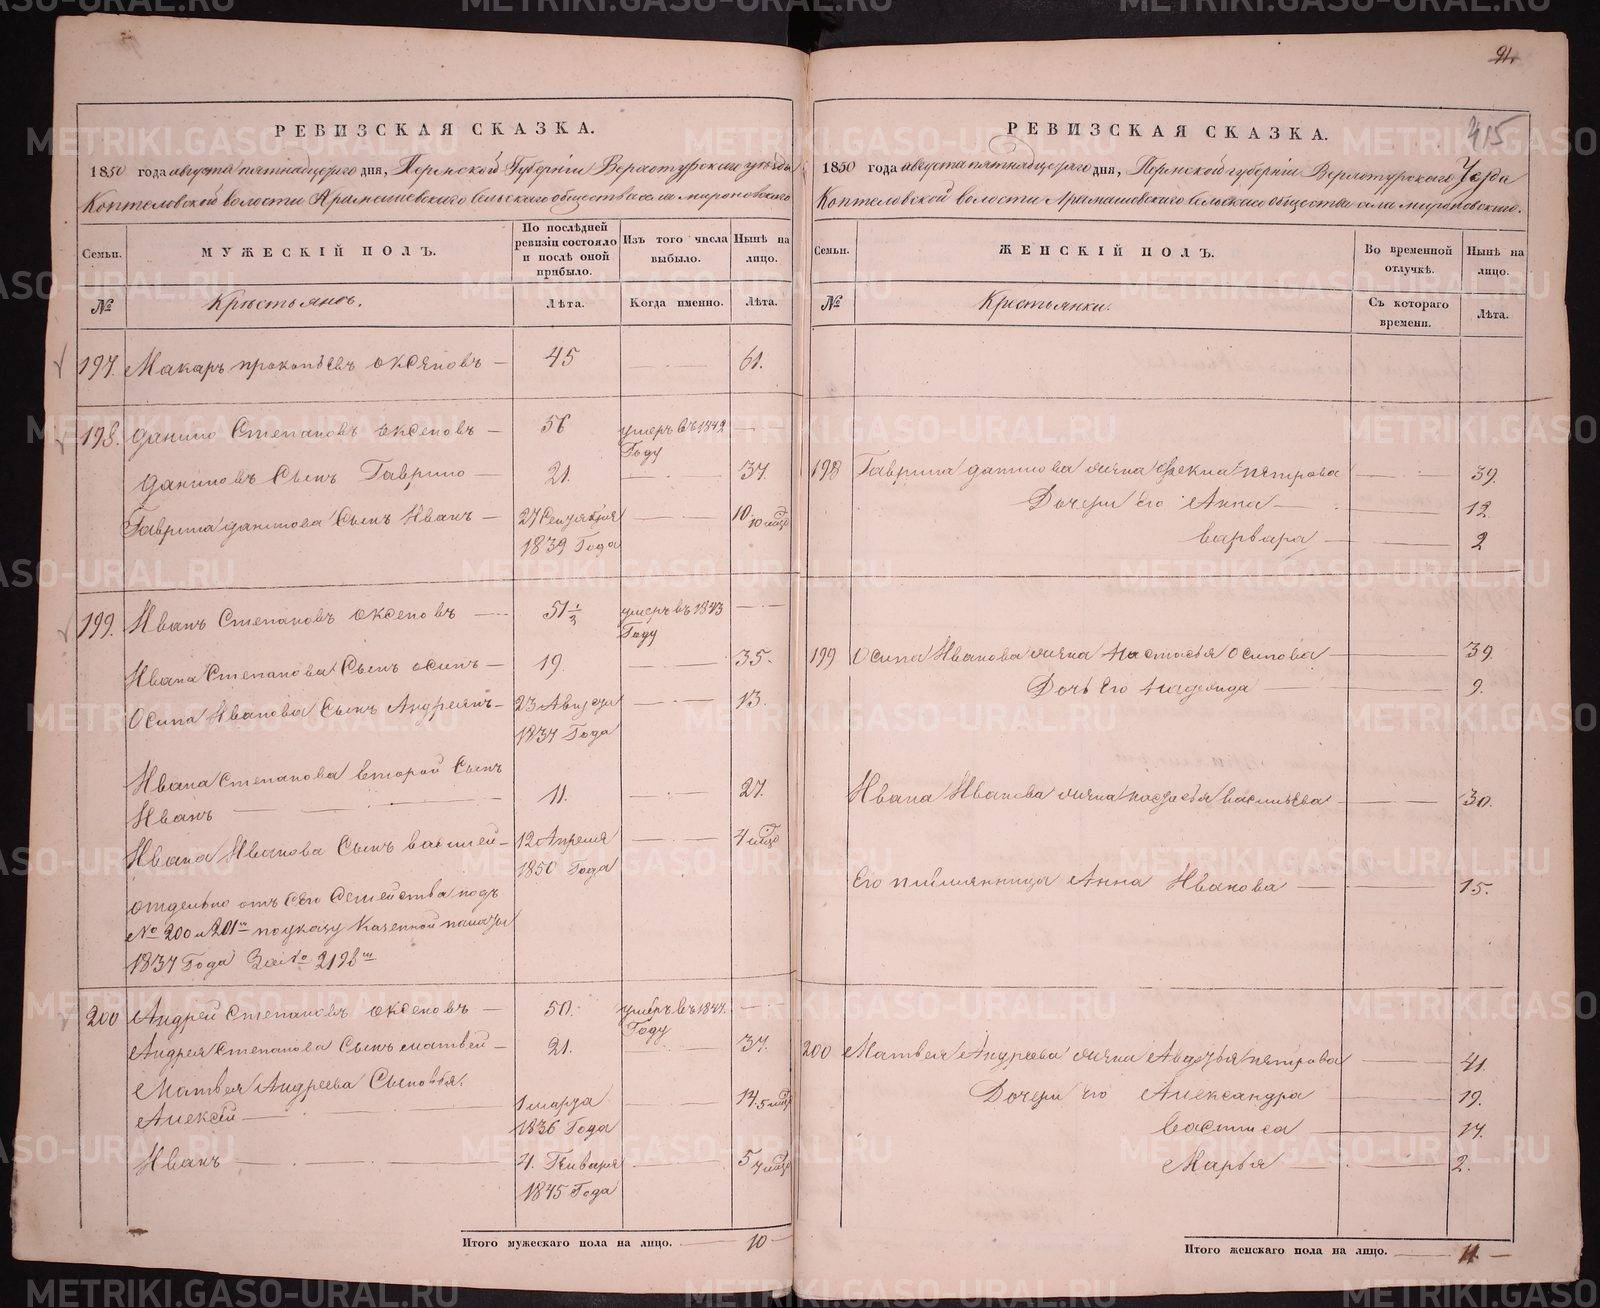 РЕВИЗСКАЯ СКАЗКА.
1850 года августа пятнадцатого дня, Пермской Губернiи Верхотурскаго уезда
Коптеловской волости Арамашевского сельского общества села мироновского
Семьи.
МУЖЕСКIЙ ПОЛЪ.
По последней ревизiи состояло и послѣ оной прибыло.
Изъ того числа выбыло.
Нынѣ на лицо.
№
Крестьяне.
Лѣта.
Когда именно.
Лѣта.
197. Макаръ прокопьевъ оксеновъ — 45 — 61.
198. данило Степановъ оксеновъ — 56 умеръ въ 1842 Году —
даниловъ Сынъ Гаврило — 21. — 37.
Гаврила данилова Сынъ Иванъ — 27 Сентября — 10 10 мес
1839 Года
199. Иванъ Степановъ оксеновъ — 51 1/2 умеръ въ 1843 Году —
Ивана Степанова Сынъ осипъ — 19. — 35.
Осипа Иванова Сынъ Андреянъ — 23 Августа — 13.
1837 Года
Ивана Степанова второй Сынъ
Иванъ — 11. — 27.
Ивана Иванова Сынъ василей — 12 Апреля — 4 мес
1850 Года
отдельно отъ Сего Семейства подъ
№ 200 и 201м по указу Казенной палаты
1837 Года За № 2198м
200 Андрей Степановъ оксеновъ — 50. умеръ въ 1847. Году —
Андрея Степанова Сынъ матвей — 21. — 37.
Матвея Андреева Сыновья.
Алексей — 1 марта — 14 5 мес
1836 Года
Иванъ — 4. Генваря — 5 7 мес
1845 Года
Итого мужескаго пола на лицо. — 10 —
91.
415
РЕВИЗСКАЯ СКАЗКА.
1850 года августа пятнадцатаго дня, Пермской губернiи Верхотурского Уезда
Коптеловской волости Арамашевского сельского общества села мироновского.
Семьи.
ЖЕНСКIЙ ПОЛЪ.
Во временной отлучкѣ.
Нынѣ на лицо.
№
Крестьянки.
Съ котораго времени.
Лѣта.
198 Гаврила данилова жена Фекла петрова — 39.
Дочери его Анна — 12
варвара — 2
199 Осипа Иванова жена Настасья Осипова — 39.
Дочь его надежда — 9.
Ивана Иванова жена настасья васильева — 30.
Его племянница Анна Иванова — 15.
200 Матвея Андреева жена Авдотья петрова — 41.
Дочери его Александра — 19.
Василиса — 17.
Марья — 2.
Итого женскаго пола на лицо. — 11. —
METRIKI.GASO-URAL.RU